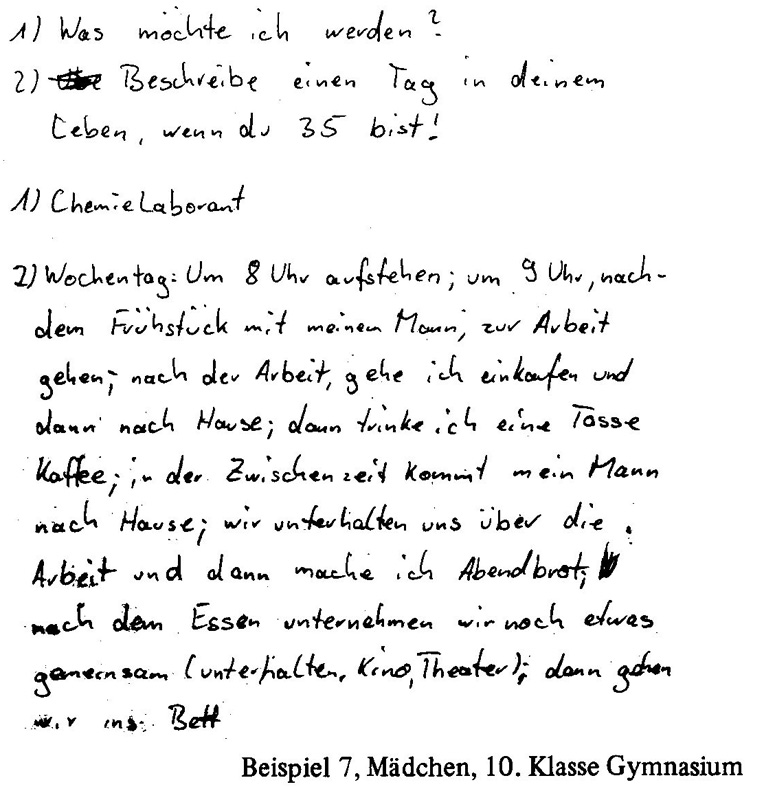 1) Was möchte ich werden?
2) Beschreibe einen Tag in deinem
Leben, wenn du 35 bist!
1) Chemielaborant
2) Wochentag: Um 8 Uhr aufstehen; um 9 Uhr, nach-
dem Frühstück mit meinem Mann, zur Arbeit
gehen; nach der Arbeit, gehe ich einkaufen und
dann nach Hause; dann trinke ich eine Tasse
Kaffee; in der Zwischenzeit kommt mein Mann
nach Hause; wir unterhalten uns über die
Arbeit und dann mache ich Abendbrot;
nach dem Essen unternehmen wir noch etwas
gemeinsam (unterhalten, Kino, Theater); dann gehen
wir ins Bett
Beispiel 7, Mädchen, 10. Klasse Gymnasium